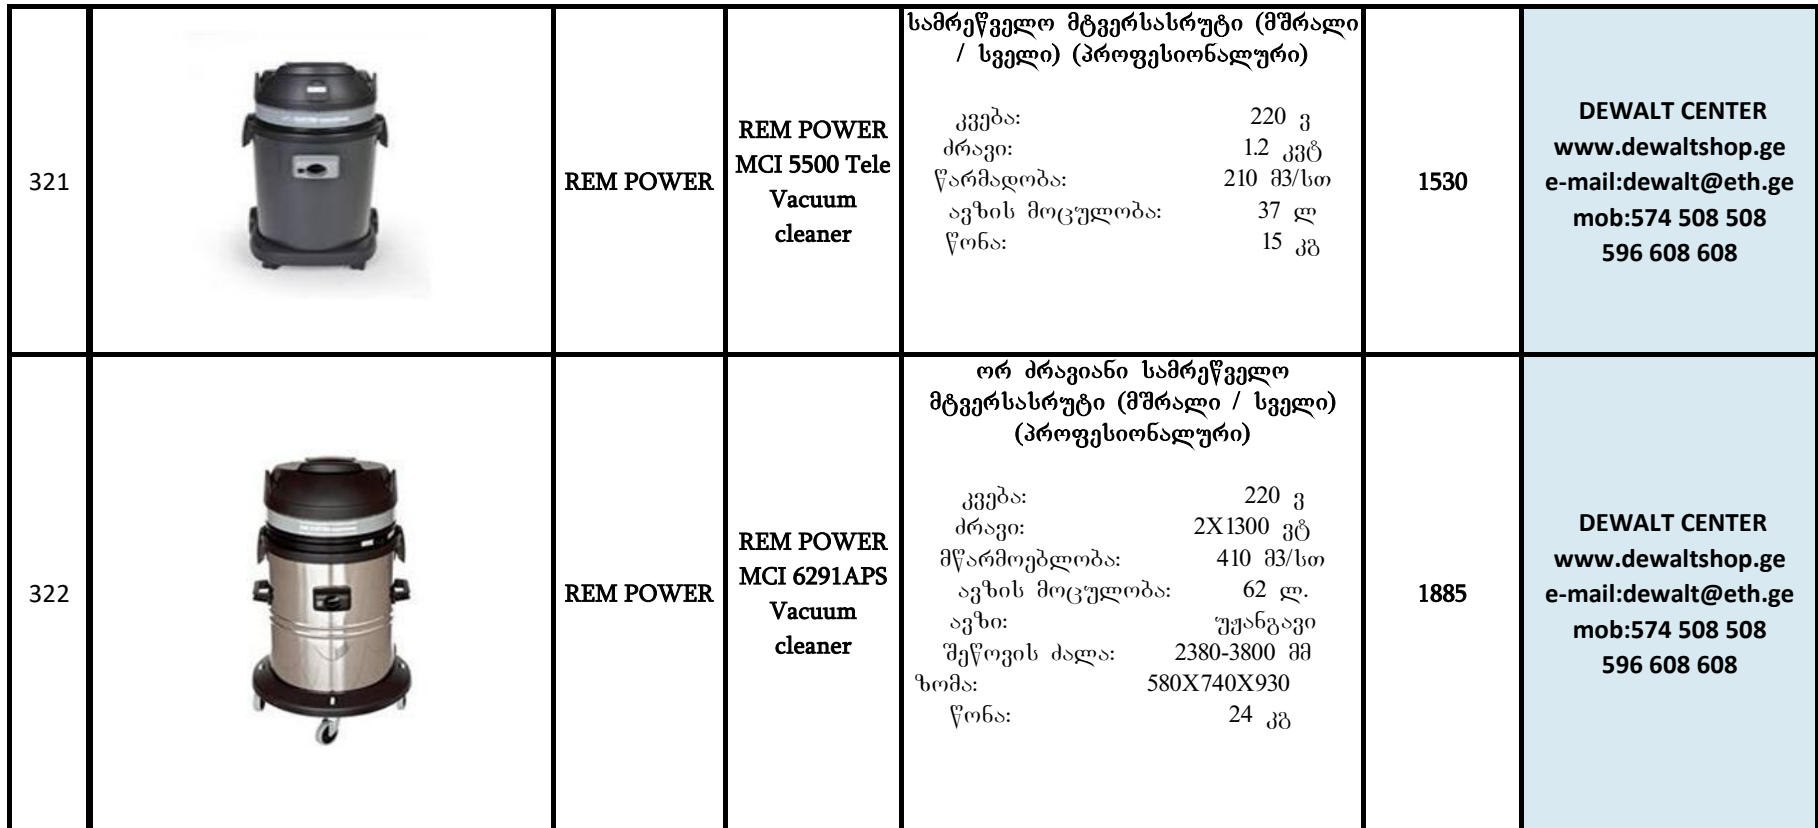 321
REM POWER
REM POWER
MCI 5500 Tele
Vacuum
cleaner
სამრეწველო მტვერსასრუტი (მშრალი
/ სველი) (პროფესიონალური)
კვება: 220 ვ
ძრავი: 1.2 კვტ
წარმადობა: 210 მ3/სთ
ავზის მოცულობა: 37 ლ
წონა: 15 კგ
1530
DEWALT CENTER
www.dewaltshop.ge
e-mail:dewalt@eth.ge
mob:574 508 508
596 608 608
322
REM POWER
REM POWER
MCI 6291APS
Vacuum
cleaner
ორ ძრავიანი სამრეწველო
მტვერსასრუტი (მშრალი / სველი)
(პროფესიონალური)
კვება: 220 ვ
ძრავი: 2X1300 ვტ
მწარმოებლობა: 410 მ3/სთ
ავზის მოცულობა: 62 ლ.
ავზი: უჟანგავი
შეწოვის ძალა: 2380-3800 მმ
ზომა: 580X740X930
წონა: 24 კგ
1885
DEWALT CENTER
www.dewaltshop.ge
e-mail:dewalt@eth.ge
mob:574 508 508
596 608 608